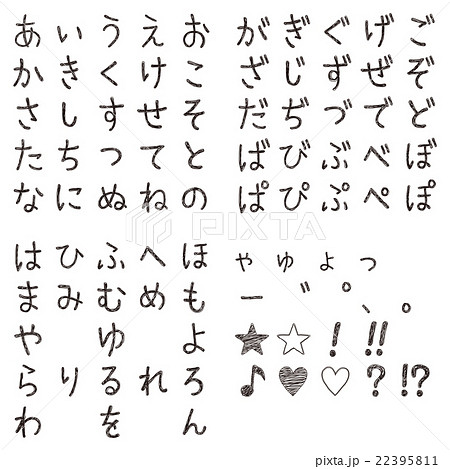 あいうえお
かきくけこ
さしすせそ
たちつてと
なにぬねの
がぎぐげご
ざじずぜぞ
だぢづでど
ばびぶべぼ
ぱぴぷぺぽ
はひふへほ
まみむめも
や ゆ よ
らりるれろ
わ を ん
ゃ ゅ ょ っ
ー ゛ ゜ 、 。
★ ☆ ! !!
♪ ♥ ♡ ? !?
PIXTA
pixta.jp - 22395811